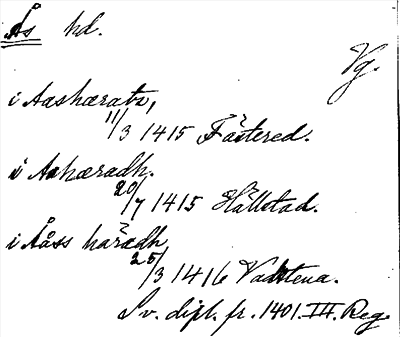 Ås hd.
Vg.
i Aashæratz,
11/3 1415 Fästered.
i Aahæradh.
20/7 1415 Hällstad.
i Aåss haradh
25/3 1416 Vadstena.
Sv. dipl. fr. 1401. III. Reg.